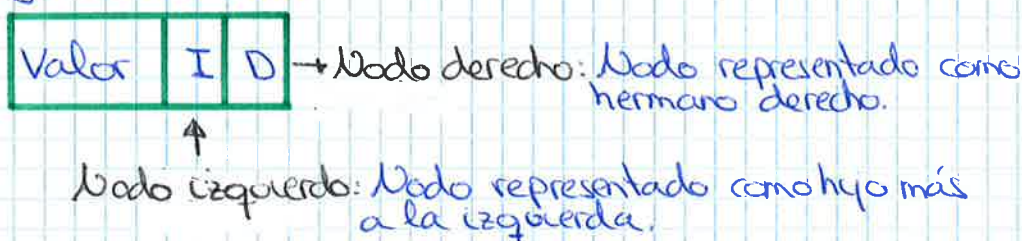 Valor I D → Nodo derecho: Nodo representado como
hermano derecho.
Nodo izquierdo: Nodo representado como hijo más
a la izquierda.